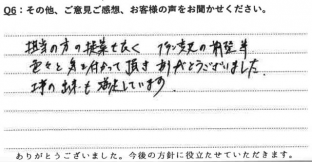 Q6：その他、ご意見ご感想、お客様の声をお聞かせください。
担当の方の提案もよく
色々と気を付かって頂きありがとうございました。
工事の出来も満足しています。
ありがとうございました。今後の方針に役立たせていただきます。